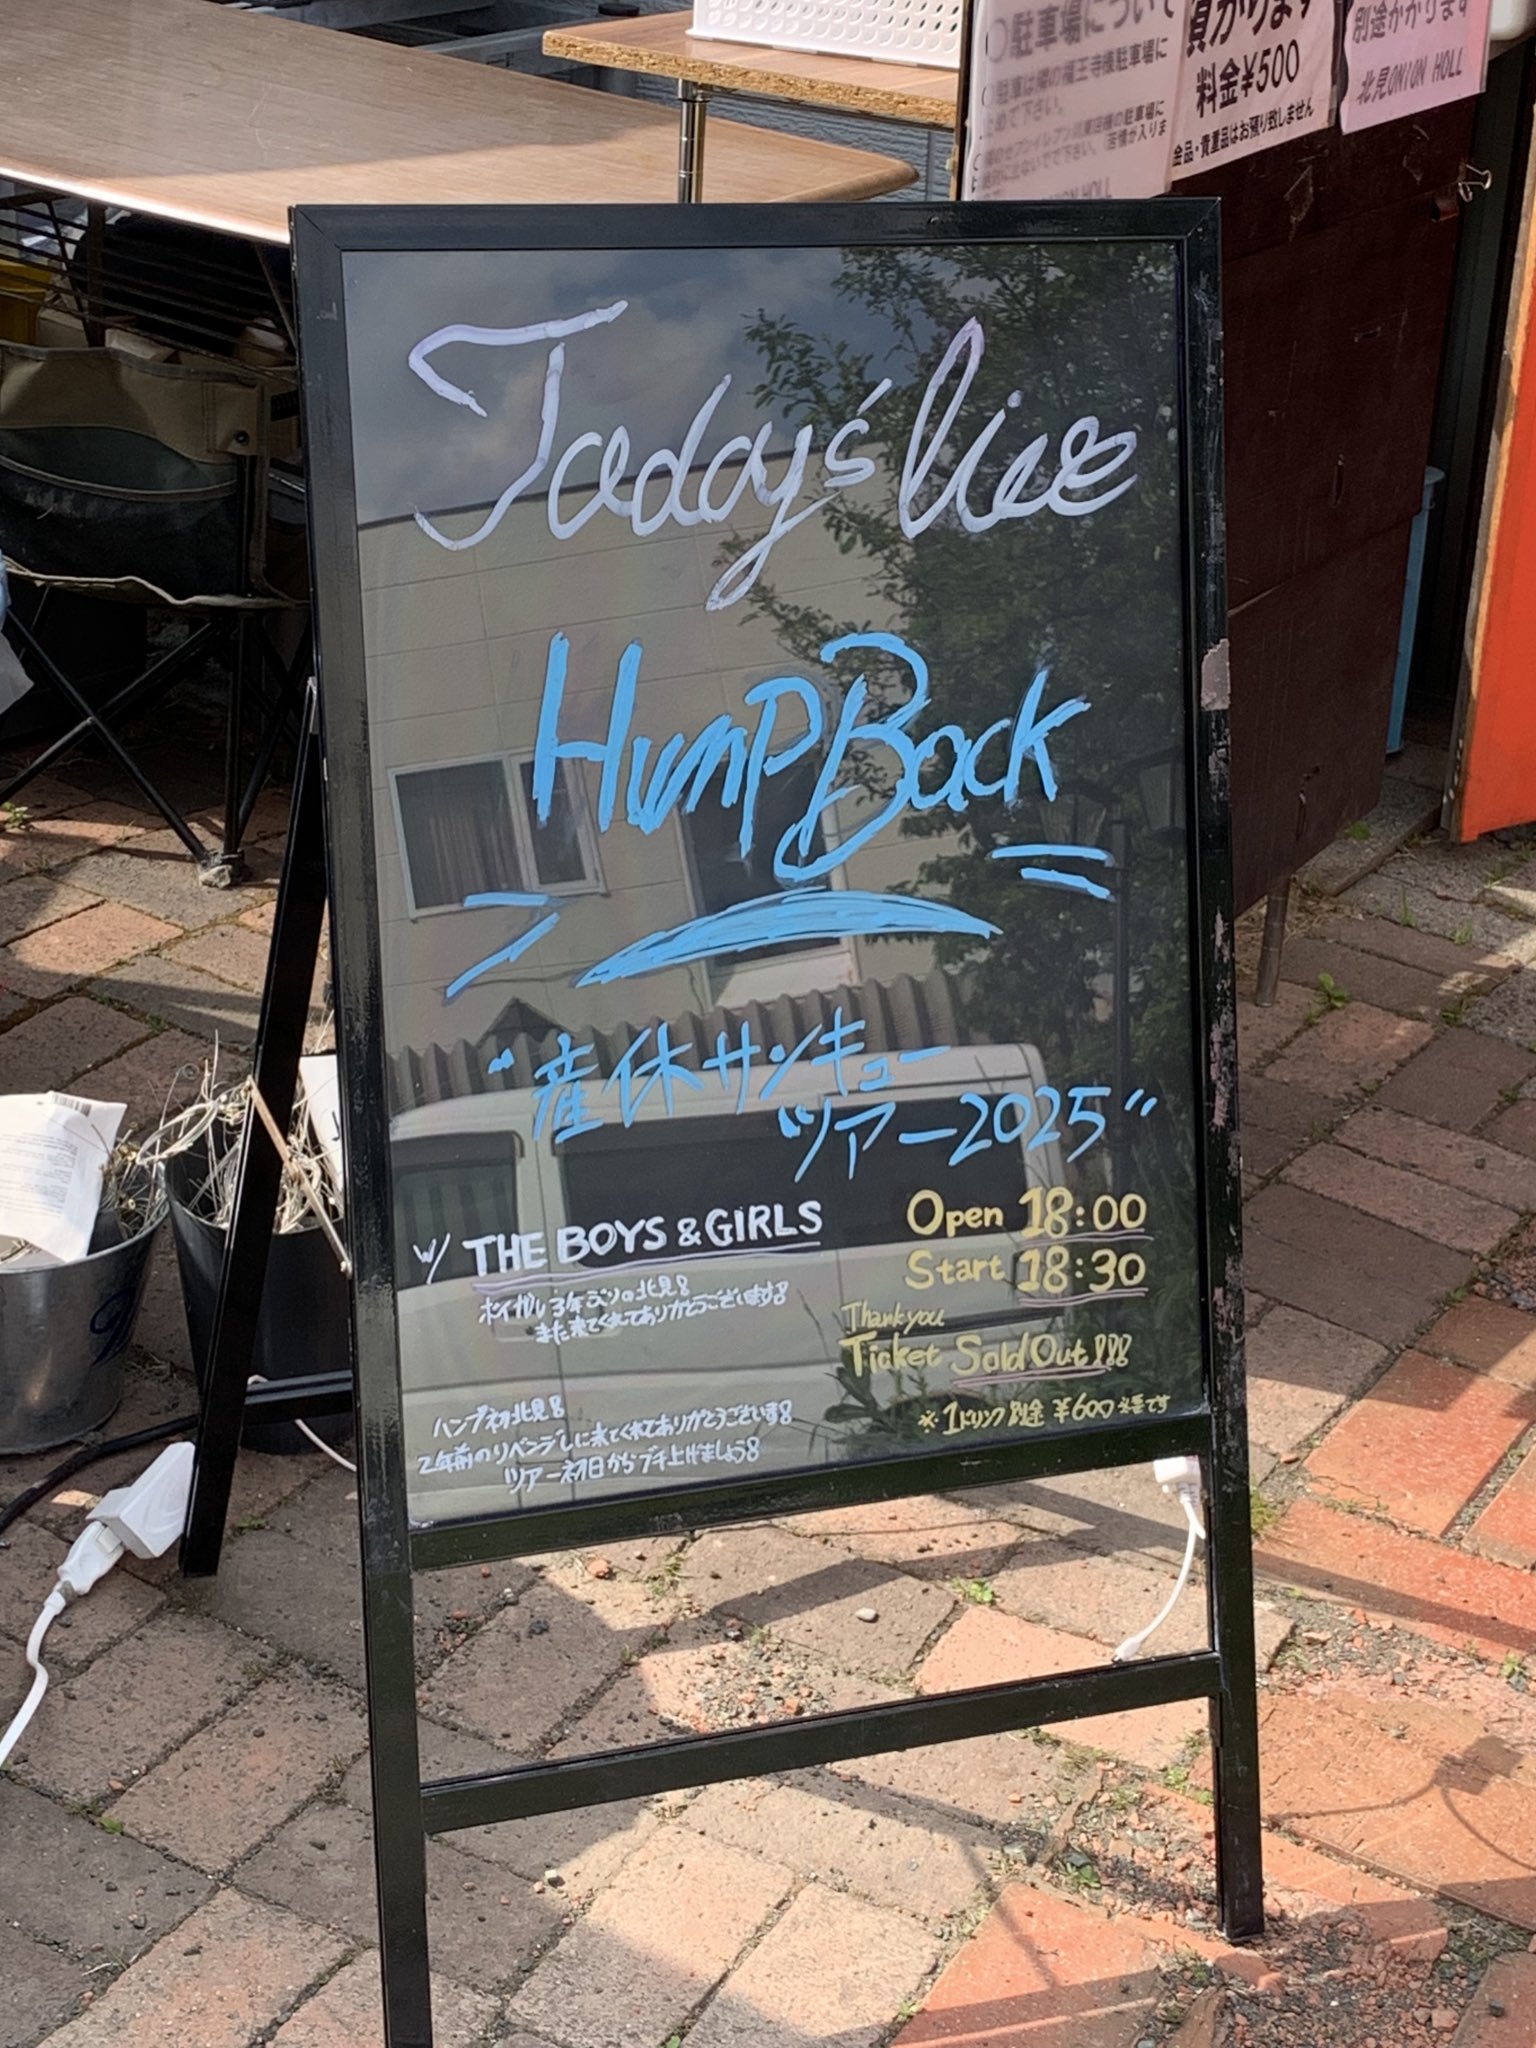 駐車場について
駐車は隣の福王寺様駐車場に
料金¥500
金品・貴重品はお預り致しません
別途かかります
北見ONION HOLL
Today's live
HumpBack
"産休サンキュー
ツアー2025"
w/ THE BOYS & GIRLS
ボイガル3年ぶりの北見!
また来てくれてありがとうございます!
Open 18:00
Start 18:30
Thank you
Ticket Sold Out!!!
※1ドリンク別途¥600必要です
ハンプ初北見!
2年前のリベンジしに来てくれてありがとうございます!
ツアー初日からブチ上げましょう!